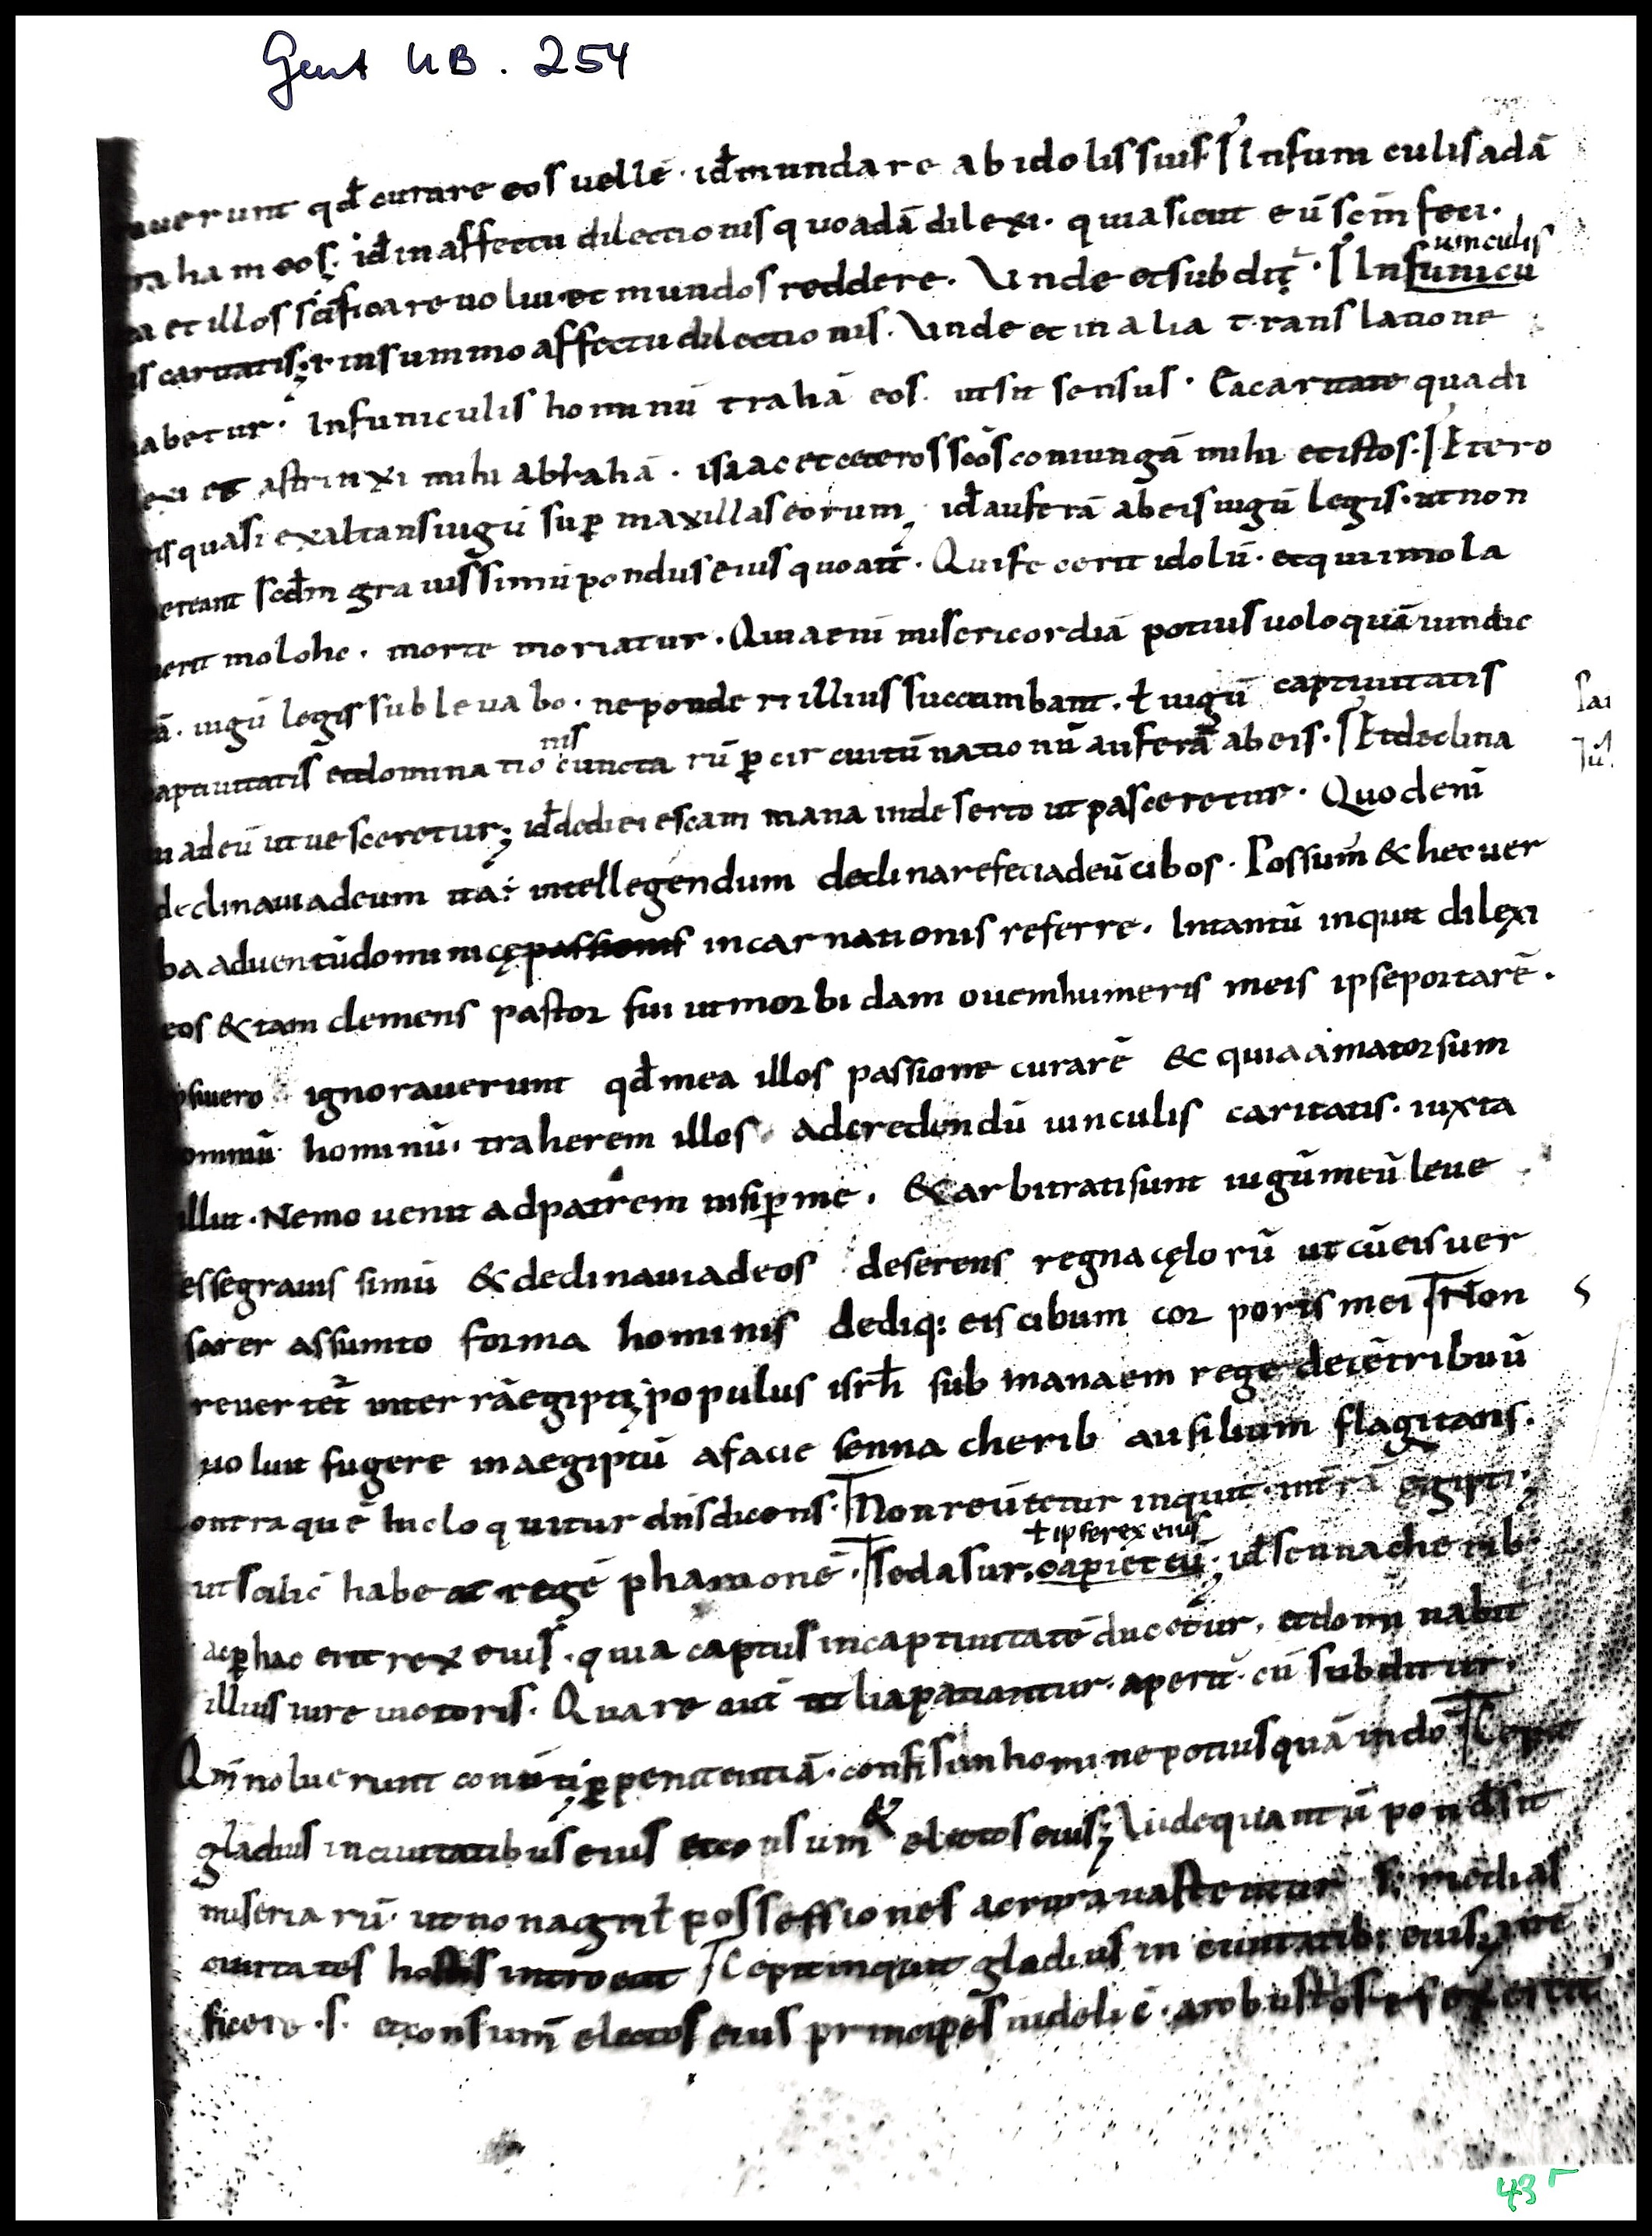 Gent UB. 254
auerunt qđ curare eos uellē · iđ mundare ab idolis suis Infuniculis adā
raham eos; iđ in affectu dilectionis quo adā dilexi · quia sicut eū scm̄ feci ·
ta et illos scīficare uolui · et mundos reddere · Unde et subdit̄ · In funicu
uinculis
is caritatis; ł in summo affectu dilectionis · Unde et in alia translatione
habetur · Infuniculis hominū trahā eos · ut sit sensus · Ea caritate qua di
lexi et astrinxi mihi abrahā · isaac et ceteros scōs coniungā mihi et istos · Et ero
eis quasi exaltans iugū sup̄ maxillas eorum; iđ auferā ab eis iugū legis · ut non
pereant scđm grauissimū pondus eius quo ait̄ · Qui fecerit idolū · et qui imola
uerit molohc · morte moriatur · Quia eni misericordiā potius uolo quā uindic
tā · iugū legis subleuabo · ne ponderi illius succumbant · ł iugū captiuitatis
captiuitatis et dominatio cunctarū p̄ circuitū nationū auferā ab eis · Et declina
nis
ui ad eū ut uesceretur; iđ dedi ei escam mana in deserto ut pasceretur · Quod enī
declinaui ad eum ita ÷ intellegendum declinare feci ad eū cibos · Possum̄ & hec uer
ba aduentū dominicę passionis incarnationis referre · Intantū inquit dilexi
eos & tam clemens pastor fui ut morbidam ouem humeris meis ipse portarē ·
Ipsi uero ignorauerunt qđ mea illos passione curarē & quia amator sum
omniū hominū · traherem illos ad credendū uinculis caritatis · iuxta
illut · Nemo uenit ad patrem nisi p̄ me · & arbitrati sunt iugū meū leue
esse grauissimū & declinaui ad eos deserens regna cęlorū ut cū eis uer
sarer assumto forma hominis dediq: eis cibum corporis mei Non
reuertet̄ in terrā egipti; populus isrł sub manaem rege decē tribuū
uoluit fugere in aegiptū a facie sennacherib ausilium flagitans ·
Contra quē hic loquitur dn̄s dicens · Non reūtetur inquit · in t̄rā ęgipti;
ut scilic̄ habeat regē pharaonē · Sed asur · capiet eū; iđ sennacherib
ł ipse rex eius
ac p̄ hac erit rex eius · quia captus in captiuitatē ducetur · et dominabit̄
illius iure uictoris · Quare aut̄ talia patiantur · aperit̄ · cū subditur ·
Qm̄ noluerunt conūti; p̄ penitentiā · confisi in homine potius quā in do Cepit
gladius in ciuitatibus eius et consum& electos eius; Uide quantū pond sit
miseriarū · ut non agri ł possessiones
ciuitates hostis introeat Cepit inquit gladius in ciuitatib: eius;
ficere · s · et consum̄ electos eius principes uidelic̄ · ac robustos
sai
s
43 r